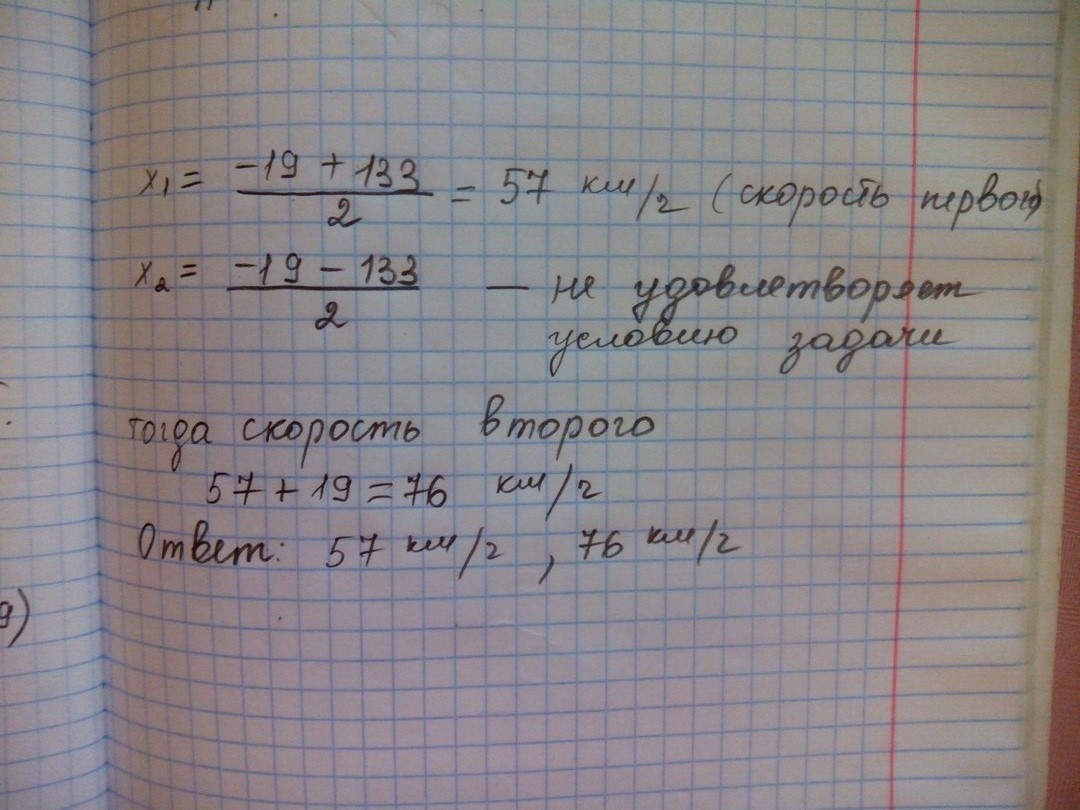 x₁ = (-19 + 133)/2 = 57 км/ч (скорость первого)
x₂ = (-19 - 133)/2 — не удовлетворяет
условию задачи
тогда скорость второго
57 + 19 = 76 км/ч
Ответ: 57 км/ч , 76 км/ч
9)